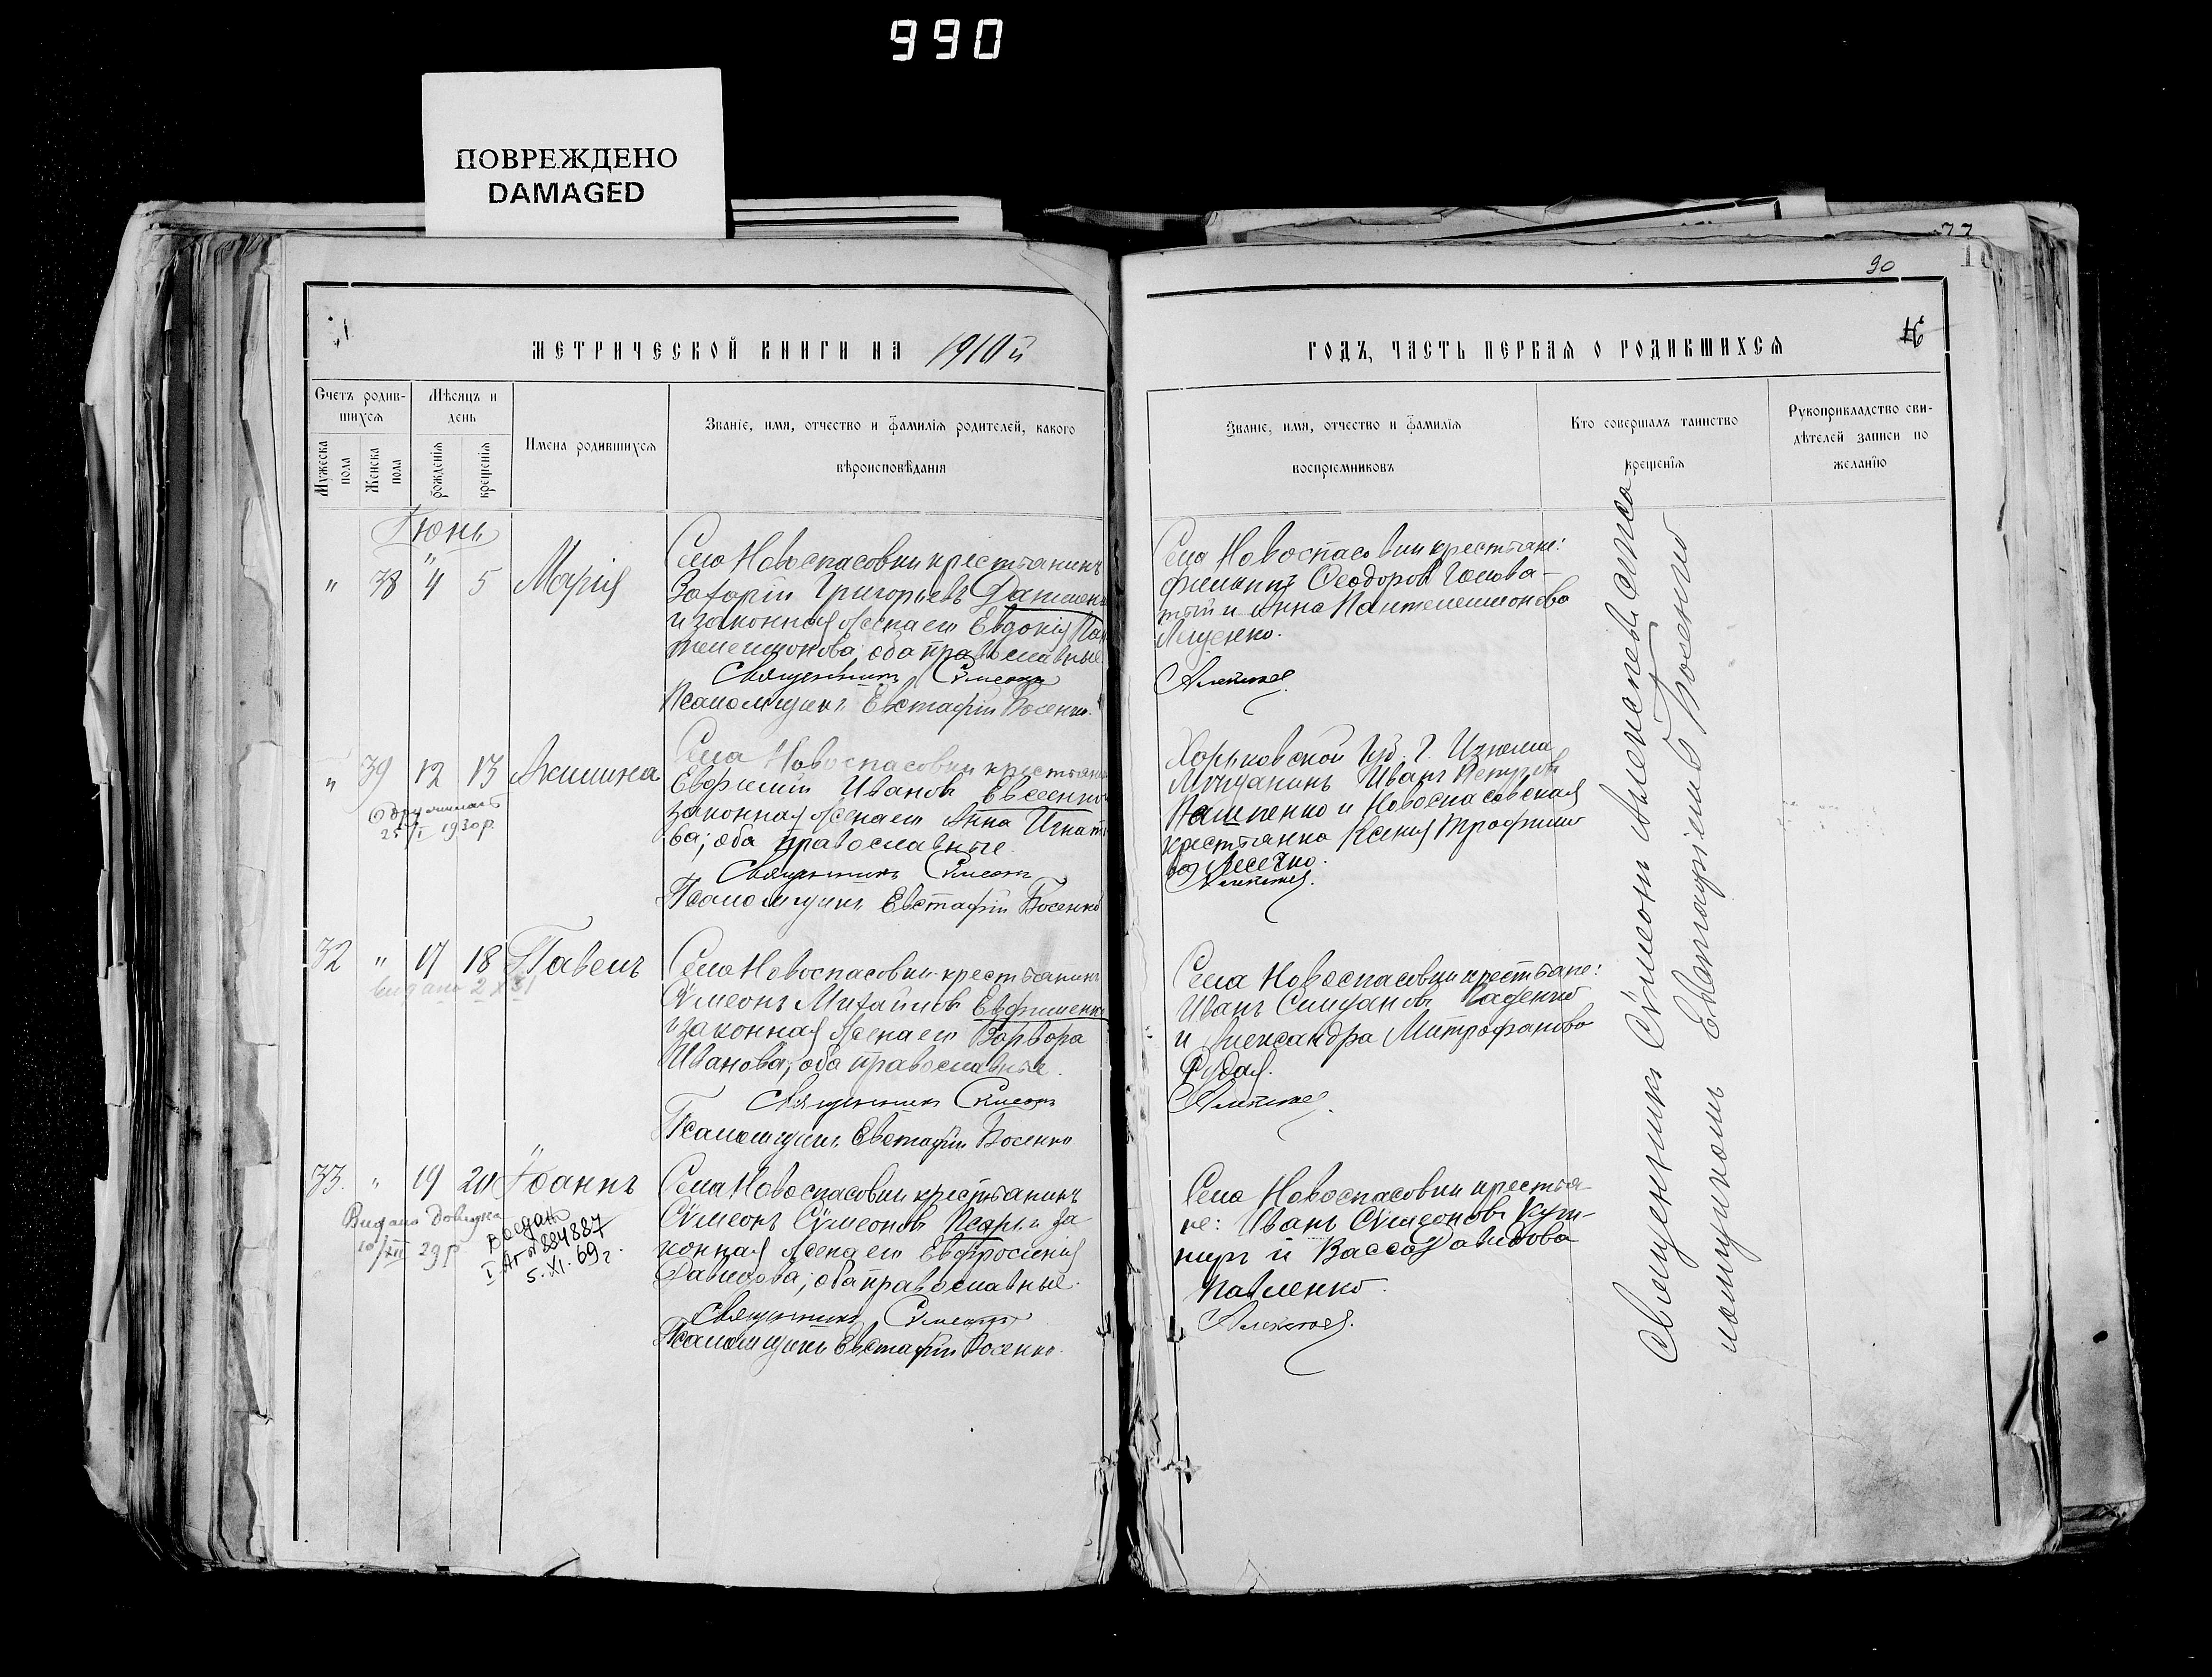 990
ПОВРЕЖДЕНО
DAMAGED
90
МЕТРИЧЕСКОЙ КНИГИ НА 1910й
ГОДЪ, ЧАСТЬ ПЕРВАЯ О РОДИВШИХСЯ
Счетъ родив-
шихся
Мужеска пола
Женска пола
Мѣсяцъ и
день
рожденія
крещенія
Имена родившихся
Званіе, имя, отчество и фамилія родителей, какого
вѣроисповѣданія
Званіе, имя, отчество и фамилія
воспріемниковъ
Кто совершалъ таинство
крещенія
Рукоприкладство сви-
дѣтелей записи по
желанію
Іюнь
" 38 4 5 Марія
Села Новоспасовки крестьянинъ
Захарій Григорьевъ
и законная жена его Евдокія Пан
телеимонова; оба православные.
Священникъ Сѵмеонъ
Псаломщикъ Евстафій Босенко.
Села Новоспасовки крестьяне:
Филиппъ Ѳеодоровъ Голова-
тый и Анна Пантелеимонова
Алексѣевъ
" 39 12 13 Акилина
Одружилась
25/I 1930р.
Села Новоспасовки крестьянин
Евфимій Ивановъ Евсеенко
законная жена его Анна Игнать
ва; оба православные.
Священникъ Сѵмеонъ
Псаломщикъ Евстафій Босенко
Харьковской губ. г. Изюма
мѣщанинъ Иванъ Петровъ
и Новоспасовская
крестьянка Ксенія Трофимо
ва
Алексѣевъ.
32 " 17 18 Павелъ
видано 2 X 31
Села Новоспасовки крестьянинъ
Сѵмеонъ Михайловъ Евфименко
и законная жена его Варвара
Иванова; оба православные.
Священникъ Сѵмеонъ
Псаломщикъ Евстафій Босенко
Села Новоспасовки крестьяне:
Иванъ
и Александра Митрофанова
Рудая.
Алексѣевъ.
33. " 19 20 Іоаннъ
Видано довідка
10/XII 29 р
Выдано
I АГ № 884887
5.XI.69г.
Села Новоспасовки крестьянинъ
Сѵмеонъ Сѵмеоновъ и за-
конная жена его Евфросинія
Давидова; оба православные.
Священникъ Сѵмеонъ
Псаломщикъ Евстафій Босенко.
Села Новоспасовки крестья-
не: Иванъ Сѵмеоновъ Куш-
ниръ и Васса Давидова
Павленко.
Алексѣевъ.
Священникъ Сѵмеонъ Алексѣевъ съ пса
ломщикомъ Евстафіемъ Босенко